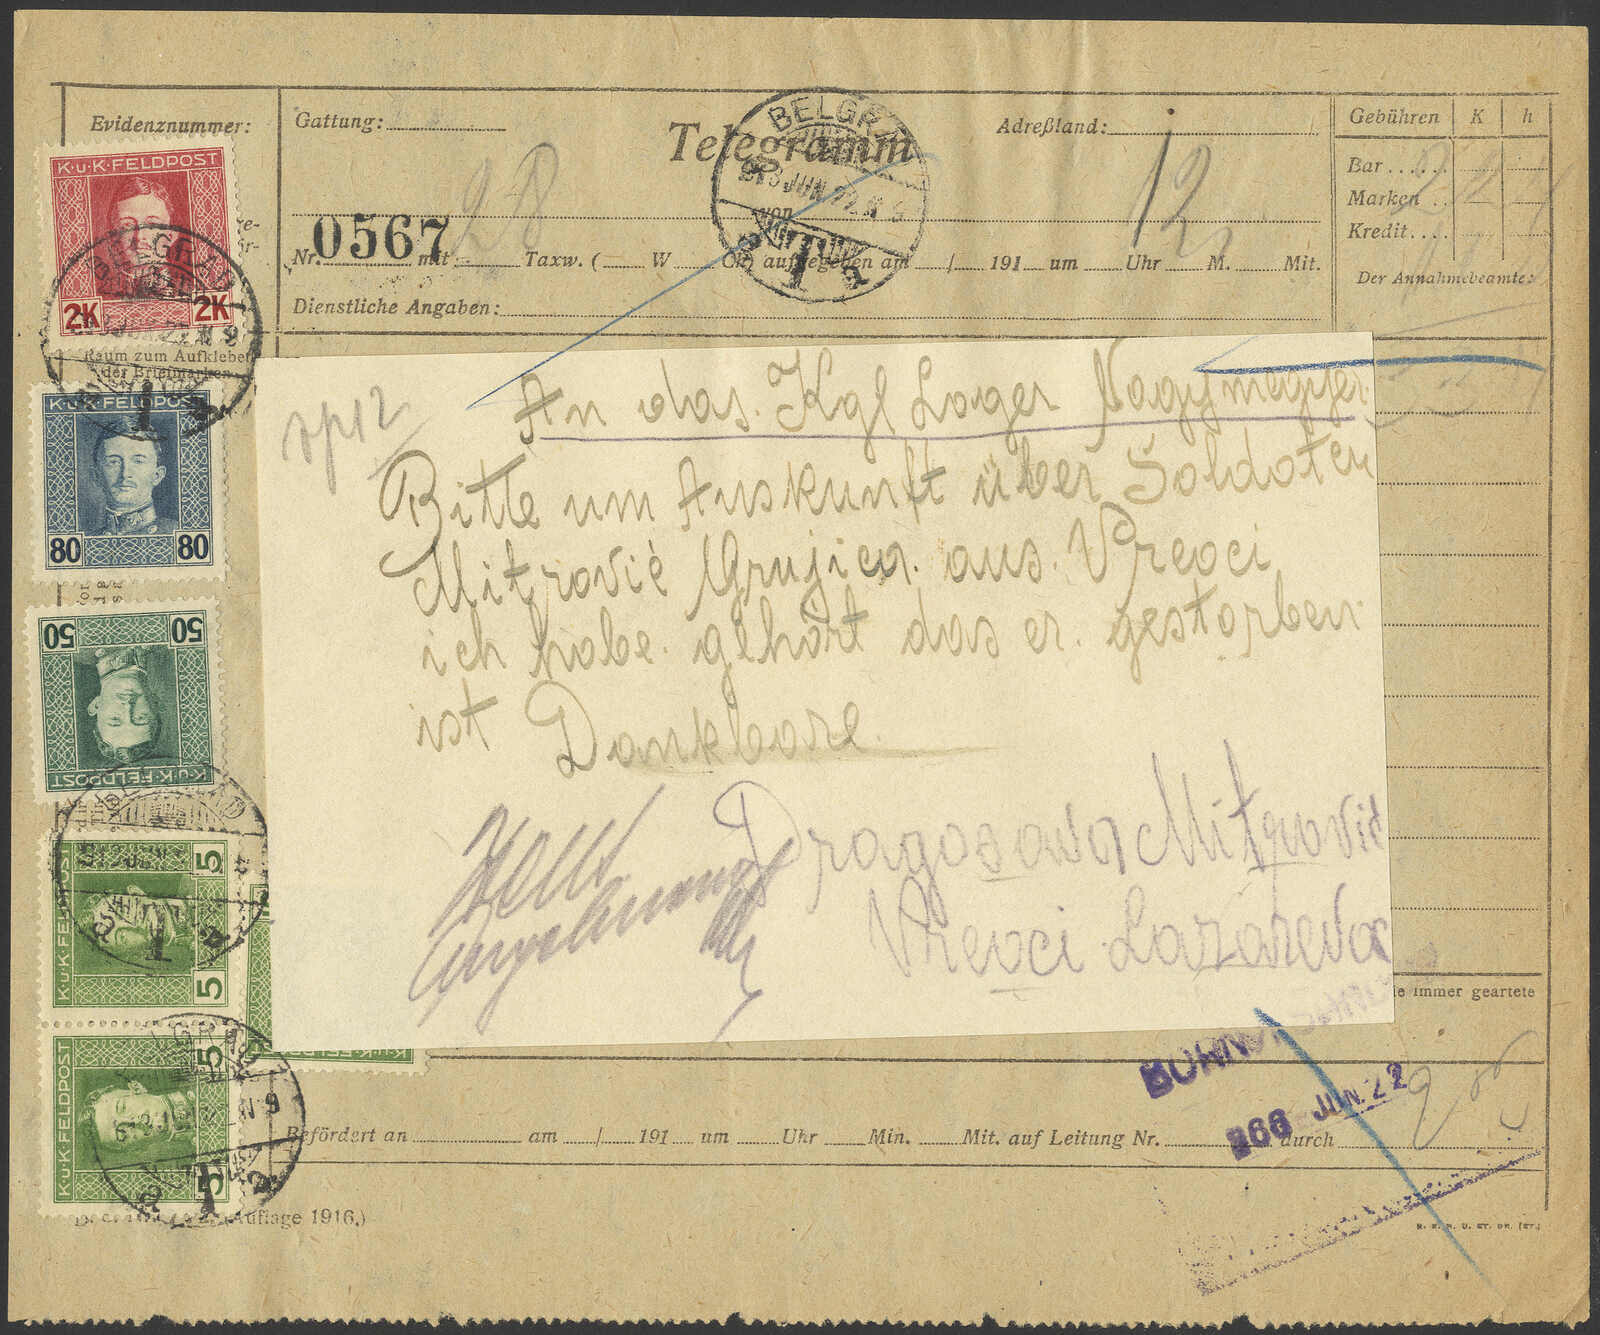 Evidenznummer:
Gattung:
Telegramm
Adreßland:
Gebühren K h
Bar
Marken
Kredit
Der Annahmebeamte:
von
28
12
Nr. 0567 mit Taxw. ( W Ch) aufgegeben am / 191 um Uhr M. Mit.
Dienstliche Angaben:
BELGRAD
1 a
K.u.K.FELDPOST
2K 2K
BELGRAD
Raum zum Aufkleben
der Briefmarken
K.u.K.FELDPOST
80 80
50 50
K.u.K.FELDPOST
5 5
K.u.K.FELDPOST
5 5
K.u.K.FELDPOST
An das Kgl Lager Nagymegyer
Bitte um Auskunft über Soldaten
Mitrović Grujica aus Vreoci
ich habe gehört das er gestorben
ist Dankbare
Dragosava Mitrović
Vreoci Lazarevac
immer geartete
JUN. 22
Befördert an am / 191 um Uhr Min. Mit. auf Leitung Nr. durch
Auflage 1916.)